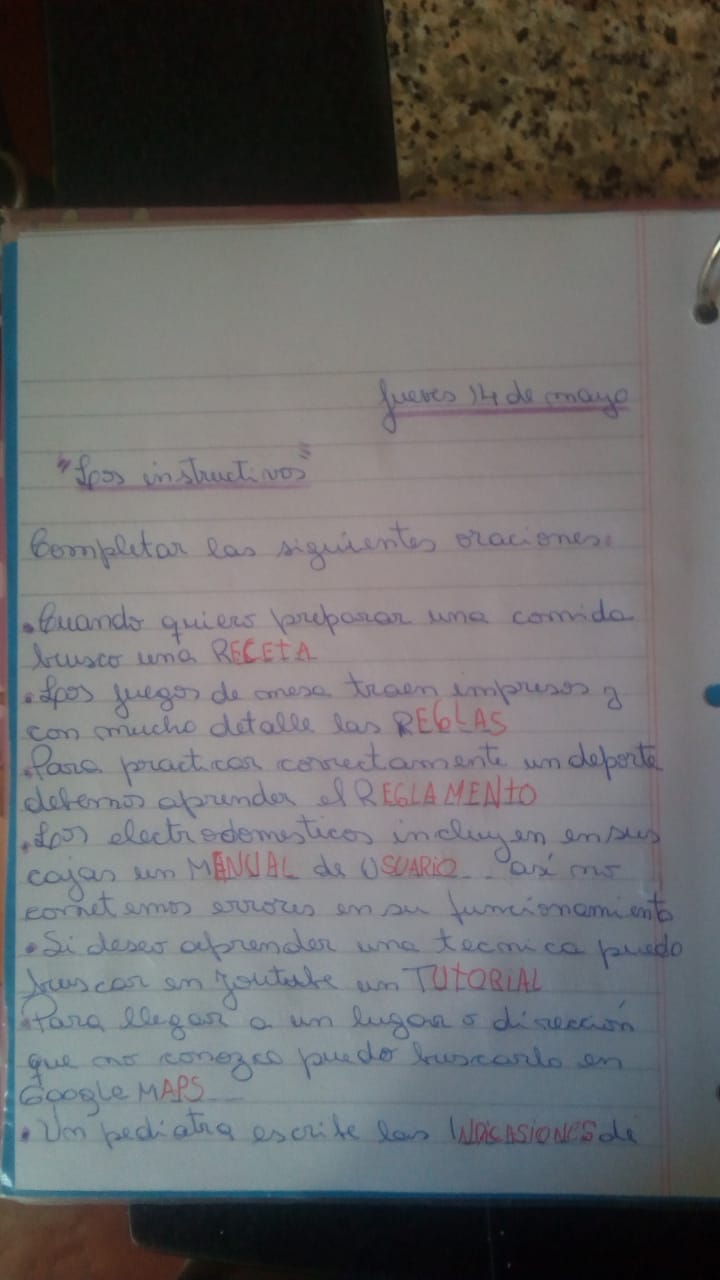 Jueves 14 de mayo
"Los instructivos"
Completar las siguientes oraciones:
• Cuando quiero preparar una comida
busco una RECETA
• Los juegos de mesa traen impresos y
con mucho detalle las REGLAS
• Para practicar correctamente un deporte
debemos aprender el REGLAMENTO
• Los electrodomesticos incluyen en sus
cajas un MANUAL de USUARIO... así no
cometemos errores en su funcionamiento
• Si deseo aprender una tecnica puedo
buscar en youtube un TUTORIAL
• Para llegar a un lugar o dirección
que no conozco puedo buscarlo en
Google MAPS
• Un pediatra escribe las INDICASIONES de